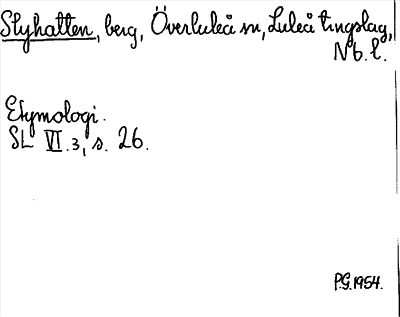 Slyhatten, berg, Överluleå sn, Luleå tingslag,
Nb. l.
Etymologi.
SL VI.3, s. 26.
P.G. 1954.